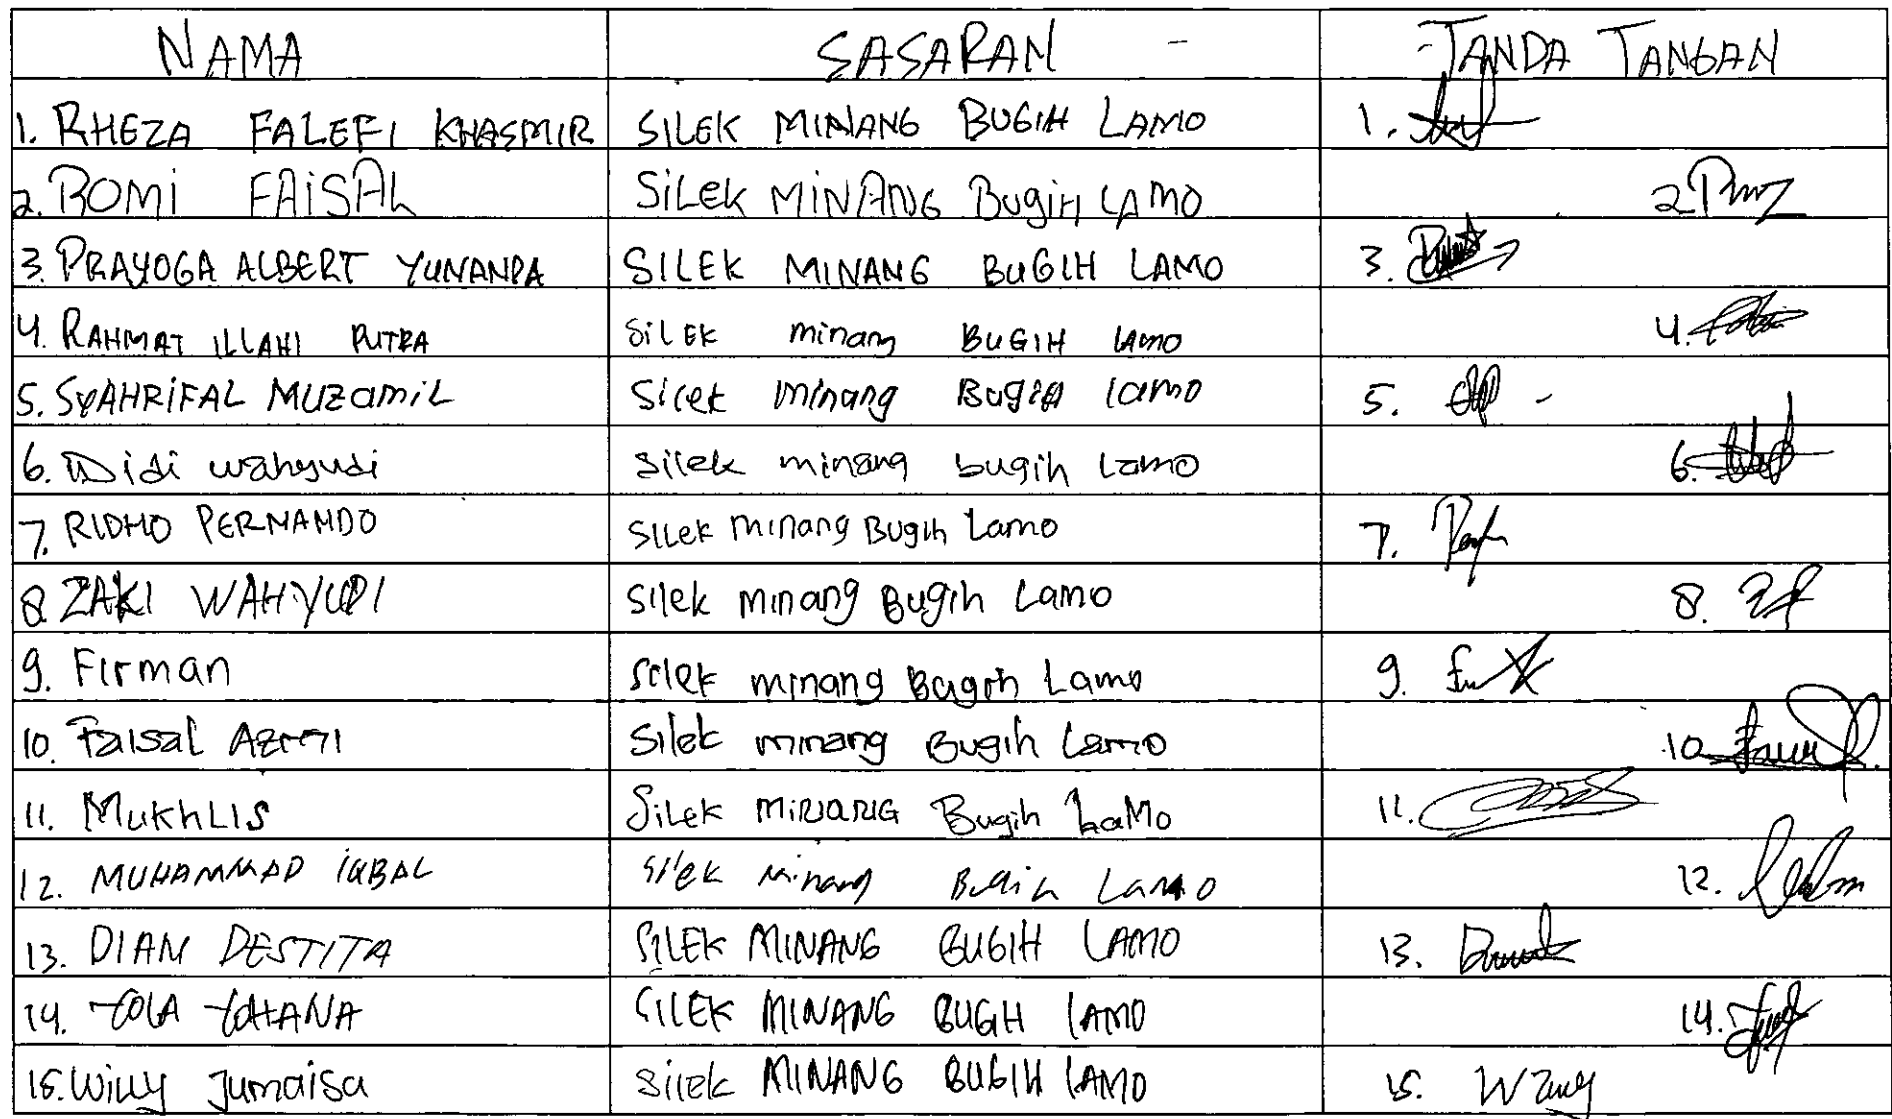 NAMA SASARAN - TANDA TANGAN
1. RHEZA FALEFI KHASMIR SILEK MINANG BUGIH LAMO 1.
2. ROMI FAISAL SiLEK MINANG Bugih LAMO 2
3. PRAYOGA ALBERT YUNANDA SILEK MINANG BUGIH LAMO 3.
4. RAHMAT ILLAHI PUTRA SiLEK minang BUGIH LAMO 4.
5. SYAHRIFAL MUZAMIL Silek minang Bugih lamo 5.
6. Didi wahyudi silek minang bugih Lamo 6.
7. RIDHO PERNANDO Silek minang Bugih Lamo 7.
8. ZAKI WAHYUDI Silek minang Bugih Lamo 8.
9. Firman silek minang Bugih Lamo 9.
10. Faisal Azmi Silek minang Bugih Lamo 10
11. MukhLIS SiLek MINANG Bugih LaMo 11.
12. MUHAMMAD IQBAL silek minang Bugih LAMO 12.
13. DIAN DESTITA SILEK MINANG BUGIH LAMO 13.
14. YOLA YOHANA SILEK MINANG BUGIH LAMO 14.
15. Willy Jumaisa Silek MINANG BUGIH LAMO 15.